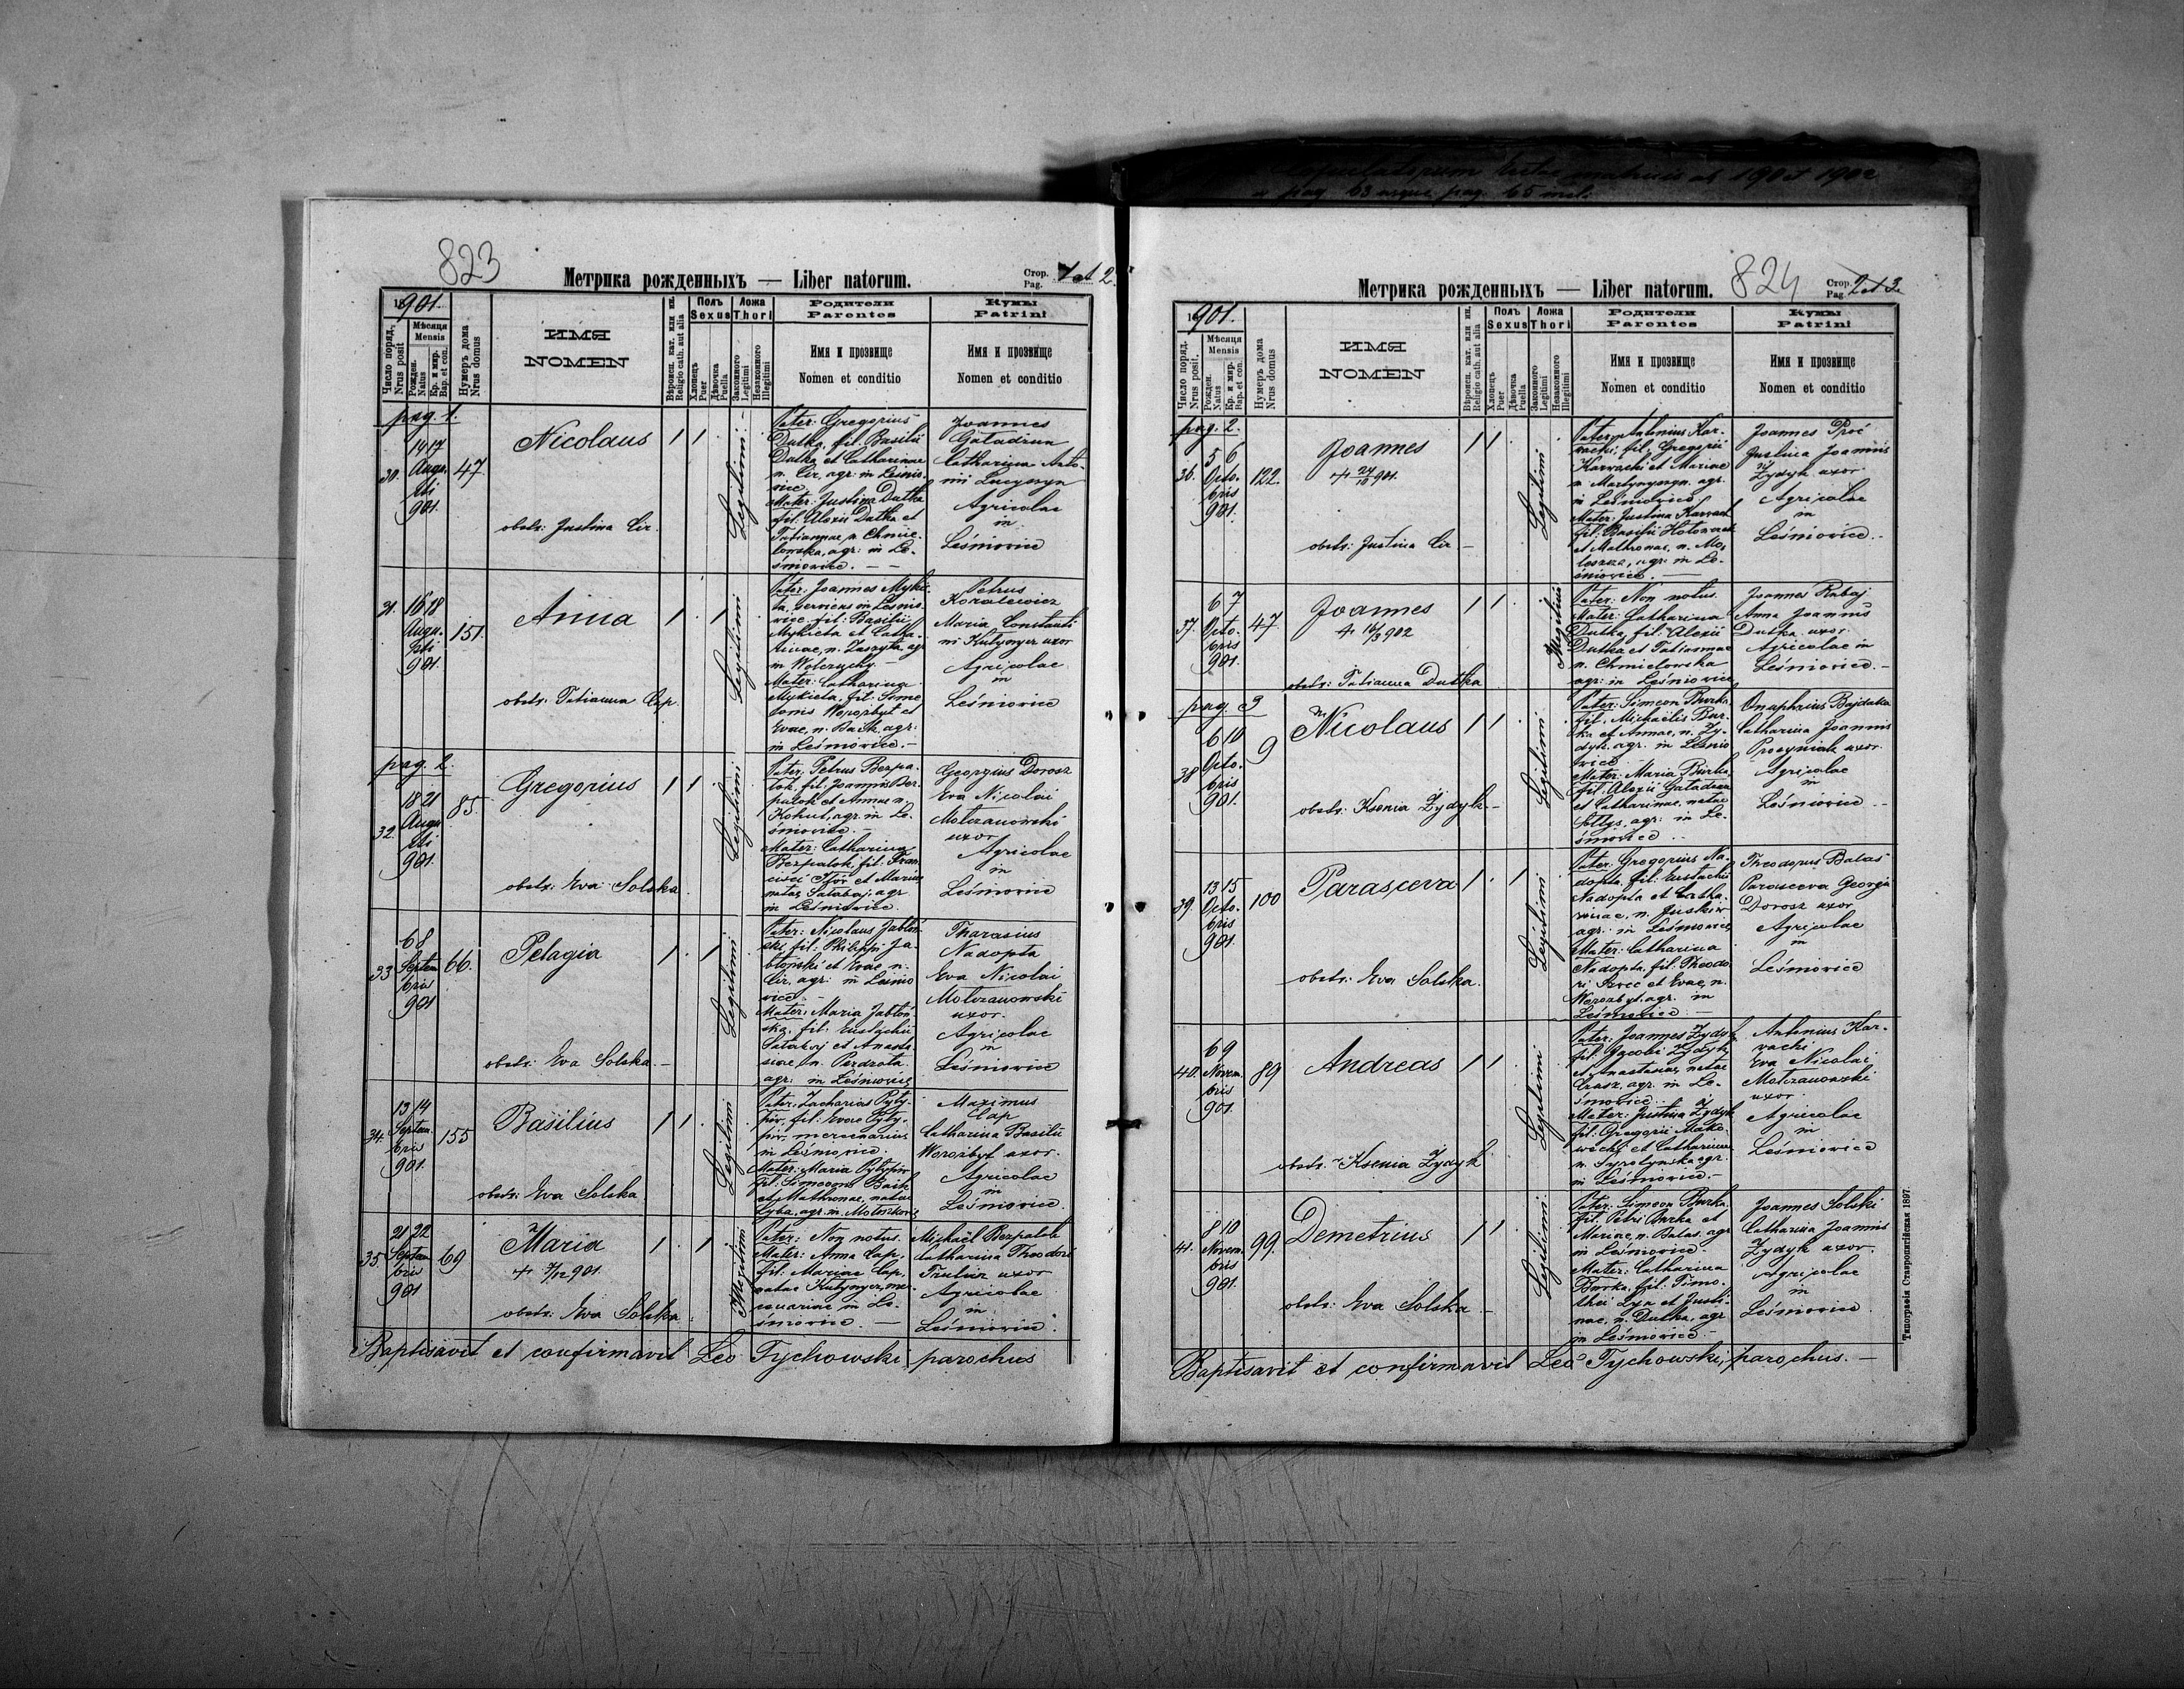 823
Метрика рожденныхъ — Liber natorum.
Стор. Pag. 1 et 2.
1901.
Число поряд. Nrus posit
Мѣсяця Mensis
Рожден. Natus
Кр. и мир. Bap. et con.
Нумеръ дома Nrus domus
ИМЯ
NOMEN
Вѣроисп. кат. или ин. Religio cath. aut alia
Полъ
Sexus
Хлопецъ Puer
Дѣвочка Puella
Ложа
Thori
Законного Legitimi
Незаконного Illegitimi
Родители
Parentes
Имя и прозвище
Nomen et conditio
Кумы
Patrini
Имя и прозвище
Nomen et conditio
pag. 1.
30. 14 17 Augusti 901. 47.
Nicolaus
obstr. Justina Cir.
Legitimi
Pater: Gregorius
Dutka, fil. Basilii
Dutka et Catharinae
n. Cir, agr. in Leśnio-
vice.
Mater: Justina Dutka
fil. Alexii Dutka et
Tatiannae n. Chmie-
lowska, agr. in Le-
śniovice. —
Joannes
Gaładzun
Catharina Anto-
nii
Agricolae
in
Leśniovice
31. 16 18 Augusti 901. 151.
Anna
obstr. Tatianna Cap.
Legitimi
Pater: Joannes Mykie-
ta, serviens in Leśnio-
vice fil. Basilii
Mykieta et Catha-
rinae, n. Zaszyta, agr.
in
Mater: Catharina
Mykieta, fil. Sime-
onis Worozbyt et
Evae, n. Baik, agr.
in Leśniovice. —
Petrus
Kovalewicz
Maria Constanti-
ni Kutynycz uxor
Agricolae
in
Leśniovice
pag. 2.
32. 18 21 Augusti 901. 85.
Gregorius
obstr. Eva Solska
Legitimi
Pater: Petrus Bezpa-
lok, fil. Joannis Bez-
palok et Annae n.
Kohut, agr. in Le-
śniovice. —
Mater: Catharina
Bezpalok, fil. Fran-
cisci et Mariae
natae Sałabaj, agr.
in Leśniovice.
Georgius Dorosz
Eva Nicolai
Mołczanowski
uxor
Agricolae
in
Leśniovice
33. 6 8 Septembris 901 66.
Pelagia
obstr. Eva Solska. —
Legitimi
Pater: Nicolaus Jabłoń-
ski, fil. Philippi Ja-
błoński et Evae n.
Cir, agr. in Leśnio-
vice. —
Mater: Maria Jabłoń-
ska, fil. Eustachii
Sałabaj et Anasta-
siae, n. Perdzota
agr. in Leśniovice
Tharasius
Nadopta
Eva Nicolai
Mołczanowski
uxor.
Agricolae
in
Leśniovice
34. 13 14 Septembris 901. 155
Basilius
obstr. Eva Solska.
Legitimi
Pater: Zacharias Pyty-
piw, fil. Evae Pyty-
piw mercenarius
in Leśniovice.
Mater: Maria Pytypiw
fil. Simeonis Baik
et Mathronae, natae
Łyba, agr. in
Maximus
Cap
Catharina Basilii
Worozbyt uxor.
Agricolae
in
Leśniovice
35. 21 22 Septembris 901 69
Maria
+ 7/12 901.
obstr. Eva Solska.
Illegitimi
Pater: Non notus.
Mater: Anna Cap,
fil. Mariae Cap,
natae Kutynycz, mer-
cenariae in Le-
śniovice. —
Michaël Bezpalok
Catharina Theodori
uxor
Agricolae
in
Leśniovice.
Baptisavit et confirmavit Leo Tychowski parochus
824
Метрика рожденныхъ — Liber natorum.
Стор. Pag. 2 et 3.
1901.
Число поряд. Nrus posit.
Мѣсяця Mensis
Рожден. Natus
Кр. и мир. Bap. et con.
Нумеръ дома Nrus domus
ИМЯ
NOMEN
Вѣроисп. кат. или ин. Religio cath. aut alia
Полъ
Sexus
Хлопецъ Puer
Дѣвочка Puella
Ложа
Thori
Законного Legitimi
Незаконного Illegitimi
Родители
Parentes
Имя и прозвище
Nomen et conditio
Кумы
Patrini
Имя и прозвище
Nomen et conditio
pag. 2.
36. 5 6 Octobris 901. 122.
Joannes
+ 27/10 901.
obstr. Justina Cir. —
Legitimi
Pater: Antonius Kar-
vacki, fil. Gregorii
Karvacki et Mariae
n. Martynyszyn, agr.
in Leśniovice
Mater: Justina
fil. Basilii
et Mathronae, n.
agr. in Le-
śniovice. —
Joannes Proć
Justina Joannis
Zydyk uxor
Agricolae
in
Leśniovice. —
37. 6 7 Octobris 901. 47
Joannes
+ 16/3 902
obstr. Tatianna Dutka
Illegitimi
Pater: Non notus.
Mater: Catharina
Dutka, fil. Alexii
Dutka et Tatiannae
n. Chmielowska
agr. in Leśniovice
Joannes Rabaj
Anna Joannis
Dutka uxor.
Agricolae in
Leśniovice. —
pag. 3
38 6 10 Octobris 901. 9
Nicolaus
obstr. Ksenia Zydyk. —
Legitimi
Pater: Simeon Burka
fil. Michaëlis Bur-
ka et Annae, n. Zy-
dyk, agr. in Leśnio-
vice.
Mater: Maria Burka,
fil. Alexii Gaładzun
et Catharinae, natae
Sołtys, agr. in Le-
śniovice. —
Onuphrius Bajdała
Catharina Joannis
uxor.
Agricolae
in
Leśniovice —
39. 13 15 Octobris 901. 100
Parasceva
obstr. Eva Solska.
Legitimi
Pater: Gregorius Na-
dopta, fil. Eustachii
Nadopta et Catha-
rinae, n. Juskiw
agr. in Leśniovice
Mater: Catharina
Nadopta, fil. Theodo-
ri et Evae, n.
Worozbyt, agr. in
Leśniovice —
Theodorus Bałas
Parasceva Georgii
Dorosz uxor
Agricolae
in
Leśniovice
40. 6 9 Novembris 901. 89
Andreas
obstr. Ksenia Zydyk
Legitimi
Pater: Joannes Zydyk,
fil. Jacobi Zydyk
et Anastasiae, natae
agr. in Le-
śniovice.
Mater: Justina Zydyk
fil. Gregorii Mako-
wecki et Catharinae
n. agr.
in Leśniovice —
Antonius Kar-
vacki
Eva Nicolai
Mołczanowski
uxor.
Agricolae
in
Leśniovice
41. 8 10 Novembris 901. 99.
Demetrius
obstr. Eva Solska —
Legitimi
Pater: Simeon Burka
fil. Petri Burka et
Mariae, n. Bałas, agr.
in Leśniovice.
Mater: Catharina
Burka, fil. Timo-
thei et Justi-
nae, n. Dutka, agr.
in Leśniovice —
Joannes Solski
Catharina Joannis
Zydyk uxor.
Agricolae
in
Leśniovice.
Baptisavit et confirmavit Leo Tychowski, parochus. —
Типографія Ставропигійская 1897.